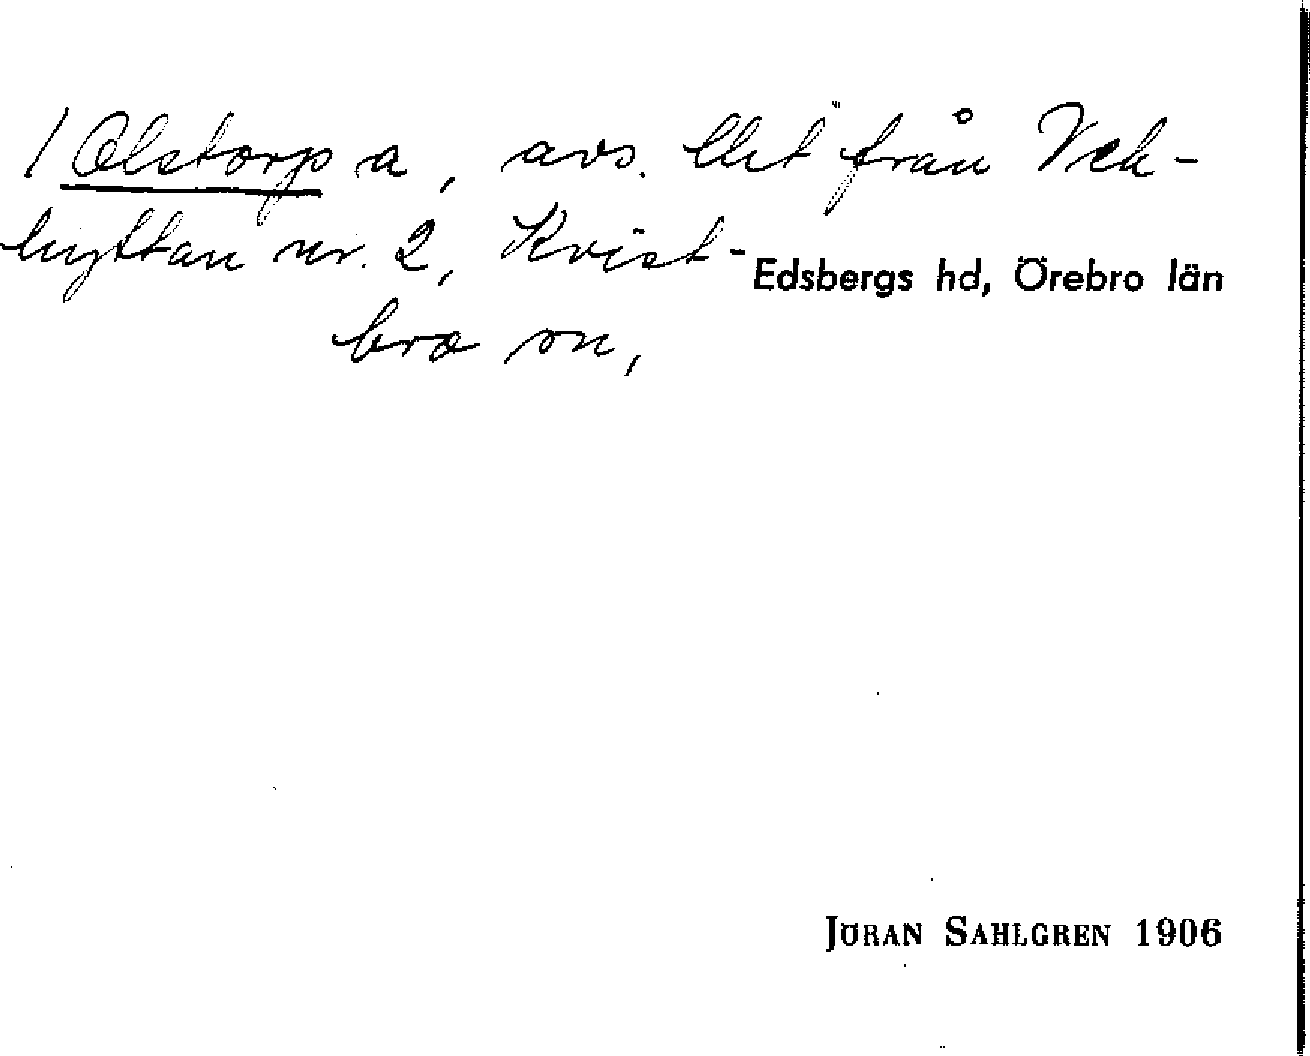 / Olstorp a, avs. lht från Vek-
hyttan nr. 2, Kvist-
Edsbergs hd, Örebro län
bro sn,
JÖRAN SAHLGREN 1906